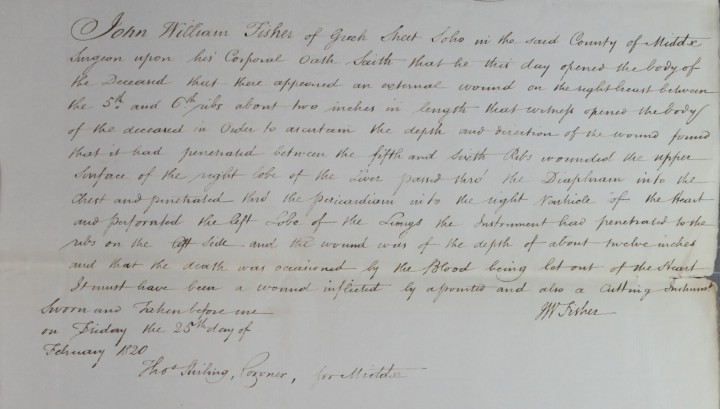 John William Fisher of Greek Street Soho in the said County of Middx
Surgeon upon his Corporal Oath Saith that he this day opened the body of
the Deceased that there appeared an external wound on the right breast between
the 5th. and 6th. ribs about two inches in length that witness opened the body
of the deceased in Order to ascertain the depth and direction of the wound found
that it had penetrated between the fifth and Sixth Ribs wounded the upper
Surface of the right lobe of the Liver passed thro' the Diaphram into the
Chest and penetrated thro' the pericardium into the right Ventricle of the Heart
and perforated the left Lobe of the Lungs the Instrument had penetrated to the
ribs on the left Side and the wound was of the depth of about twelve inches
and that the death was occasioned by the Blood being let out of the Heart
It must have been a wound inflicted by a pointed and also a Cutting Instrumt
JW Fisher
Sworn and Taken before me
on Friday the 25th day of
February 1820
Thos Stirling, Coroner, for Middx